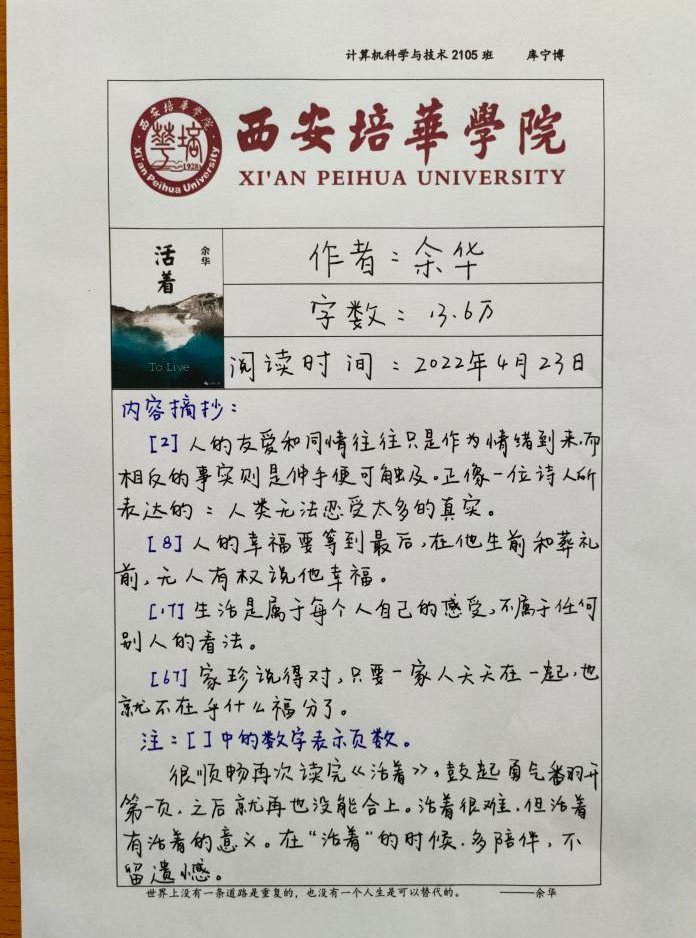 计算机科学与技术 2105 班 库宁博
西安培華學院
XI'AN PEIHUA UNIVERSITY
西安培华学院
Xi'an Peihua University
1928
活着
余华
To Live
作者：余华
字数：13.6万
阅读时间：2022年4月23日
内容摘抄：
[2] 人的友爱和同情往往只是作为情绪到来,而
相反的事实则是伸手便可触及。正像一位诗人所
表达的：人类无法忍受太多的真实。
[8] 人的幸福要等到最后,在他生前和葬礼
前,无人有权说他幸福。
[17] 生活是属于每个人自己的感受,不属于任何
别人的看法。
[67] 家珍说得对,只要一家人天天在一起,也
就不在乎什么福分了。
注：[ ]中的数字表示页数。
很顺畅再次读完《活着》,鼓起勇气翻开
第一页,之后就再也没能合上。活着很难,但活着
有活着的意义。在“活着”的时候,多陪伴,不
留遗憾。
世界上没有一条道路是重复的，也没有一个人生是可以替代的。 ———余华